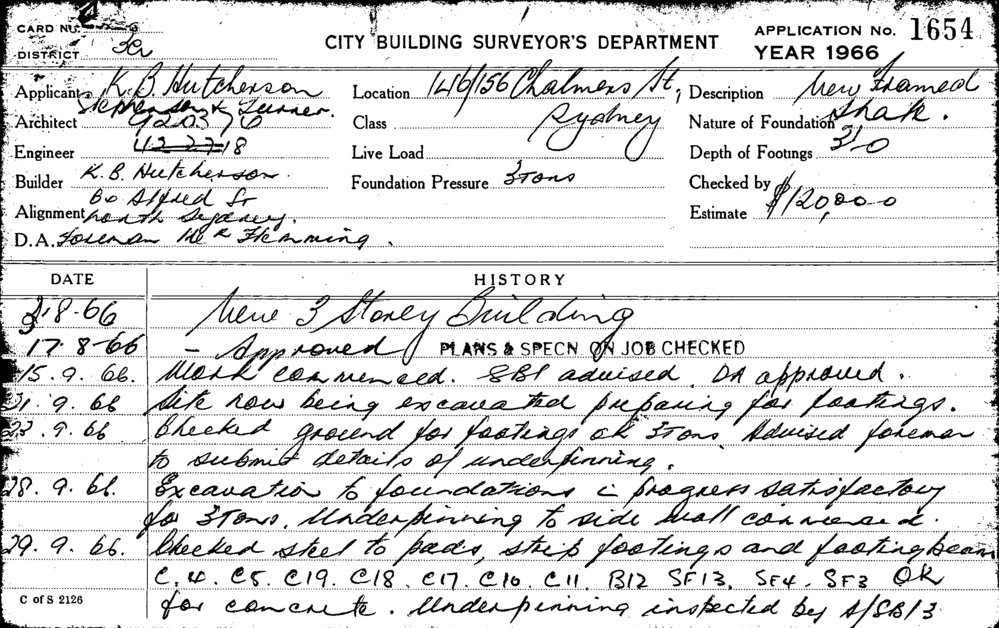 CARD No.
DISTRICT
CITY BUILDING SURVEYOR'S DEPARTMENT
APPLICATION No. 1654
YEAR 1966
Applicant K. B. Hutcherson
Stephenson & Turner.
Architect 920376
Engineer 42-2718
Builder K. B. Hutcherson.
80 Alfred St
Alignment north Sydney.
D.A. Foreman Mr Flemming.
Location 146/156 Chalmers St,
Class Sydney
Live Load
Foundation Pressure 3Tons
Description New Framed
Nature of Foundation Shale.
Depth of Footings 3'0
Checked by
Estimate $120,000
DATE HISTORY
2.8-66 New 3 Storey Building
17.8-66 - Approved PLANS & SPECN. ON JOB CHECKED
15.9.66. Work commenced. SBI advised. DA approved.
21.9.66 Site now being excavated preparing for footings.
23.9.66 Checked ground for footings ok 3Tons. Advised foreman
to submit details of underpinning.
28.9.66. Excavation to foundations in progress satisfactory
for 3Tons. Underpinning to side wall commenced.
29.9.66. Checked steel to pads, strip footings and footing beam
C.4. C5. C19. C18. C17. C10. C11. B12 SF13. SF4. SF3 OK
for concrete. Underpinning inspected by S/SB/3
C of S 2126